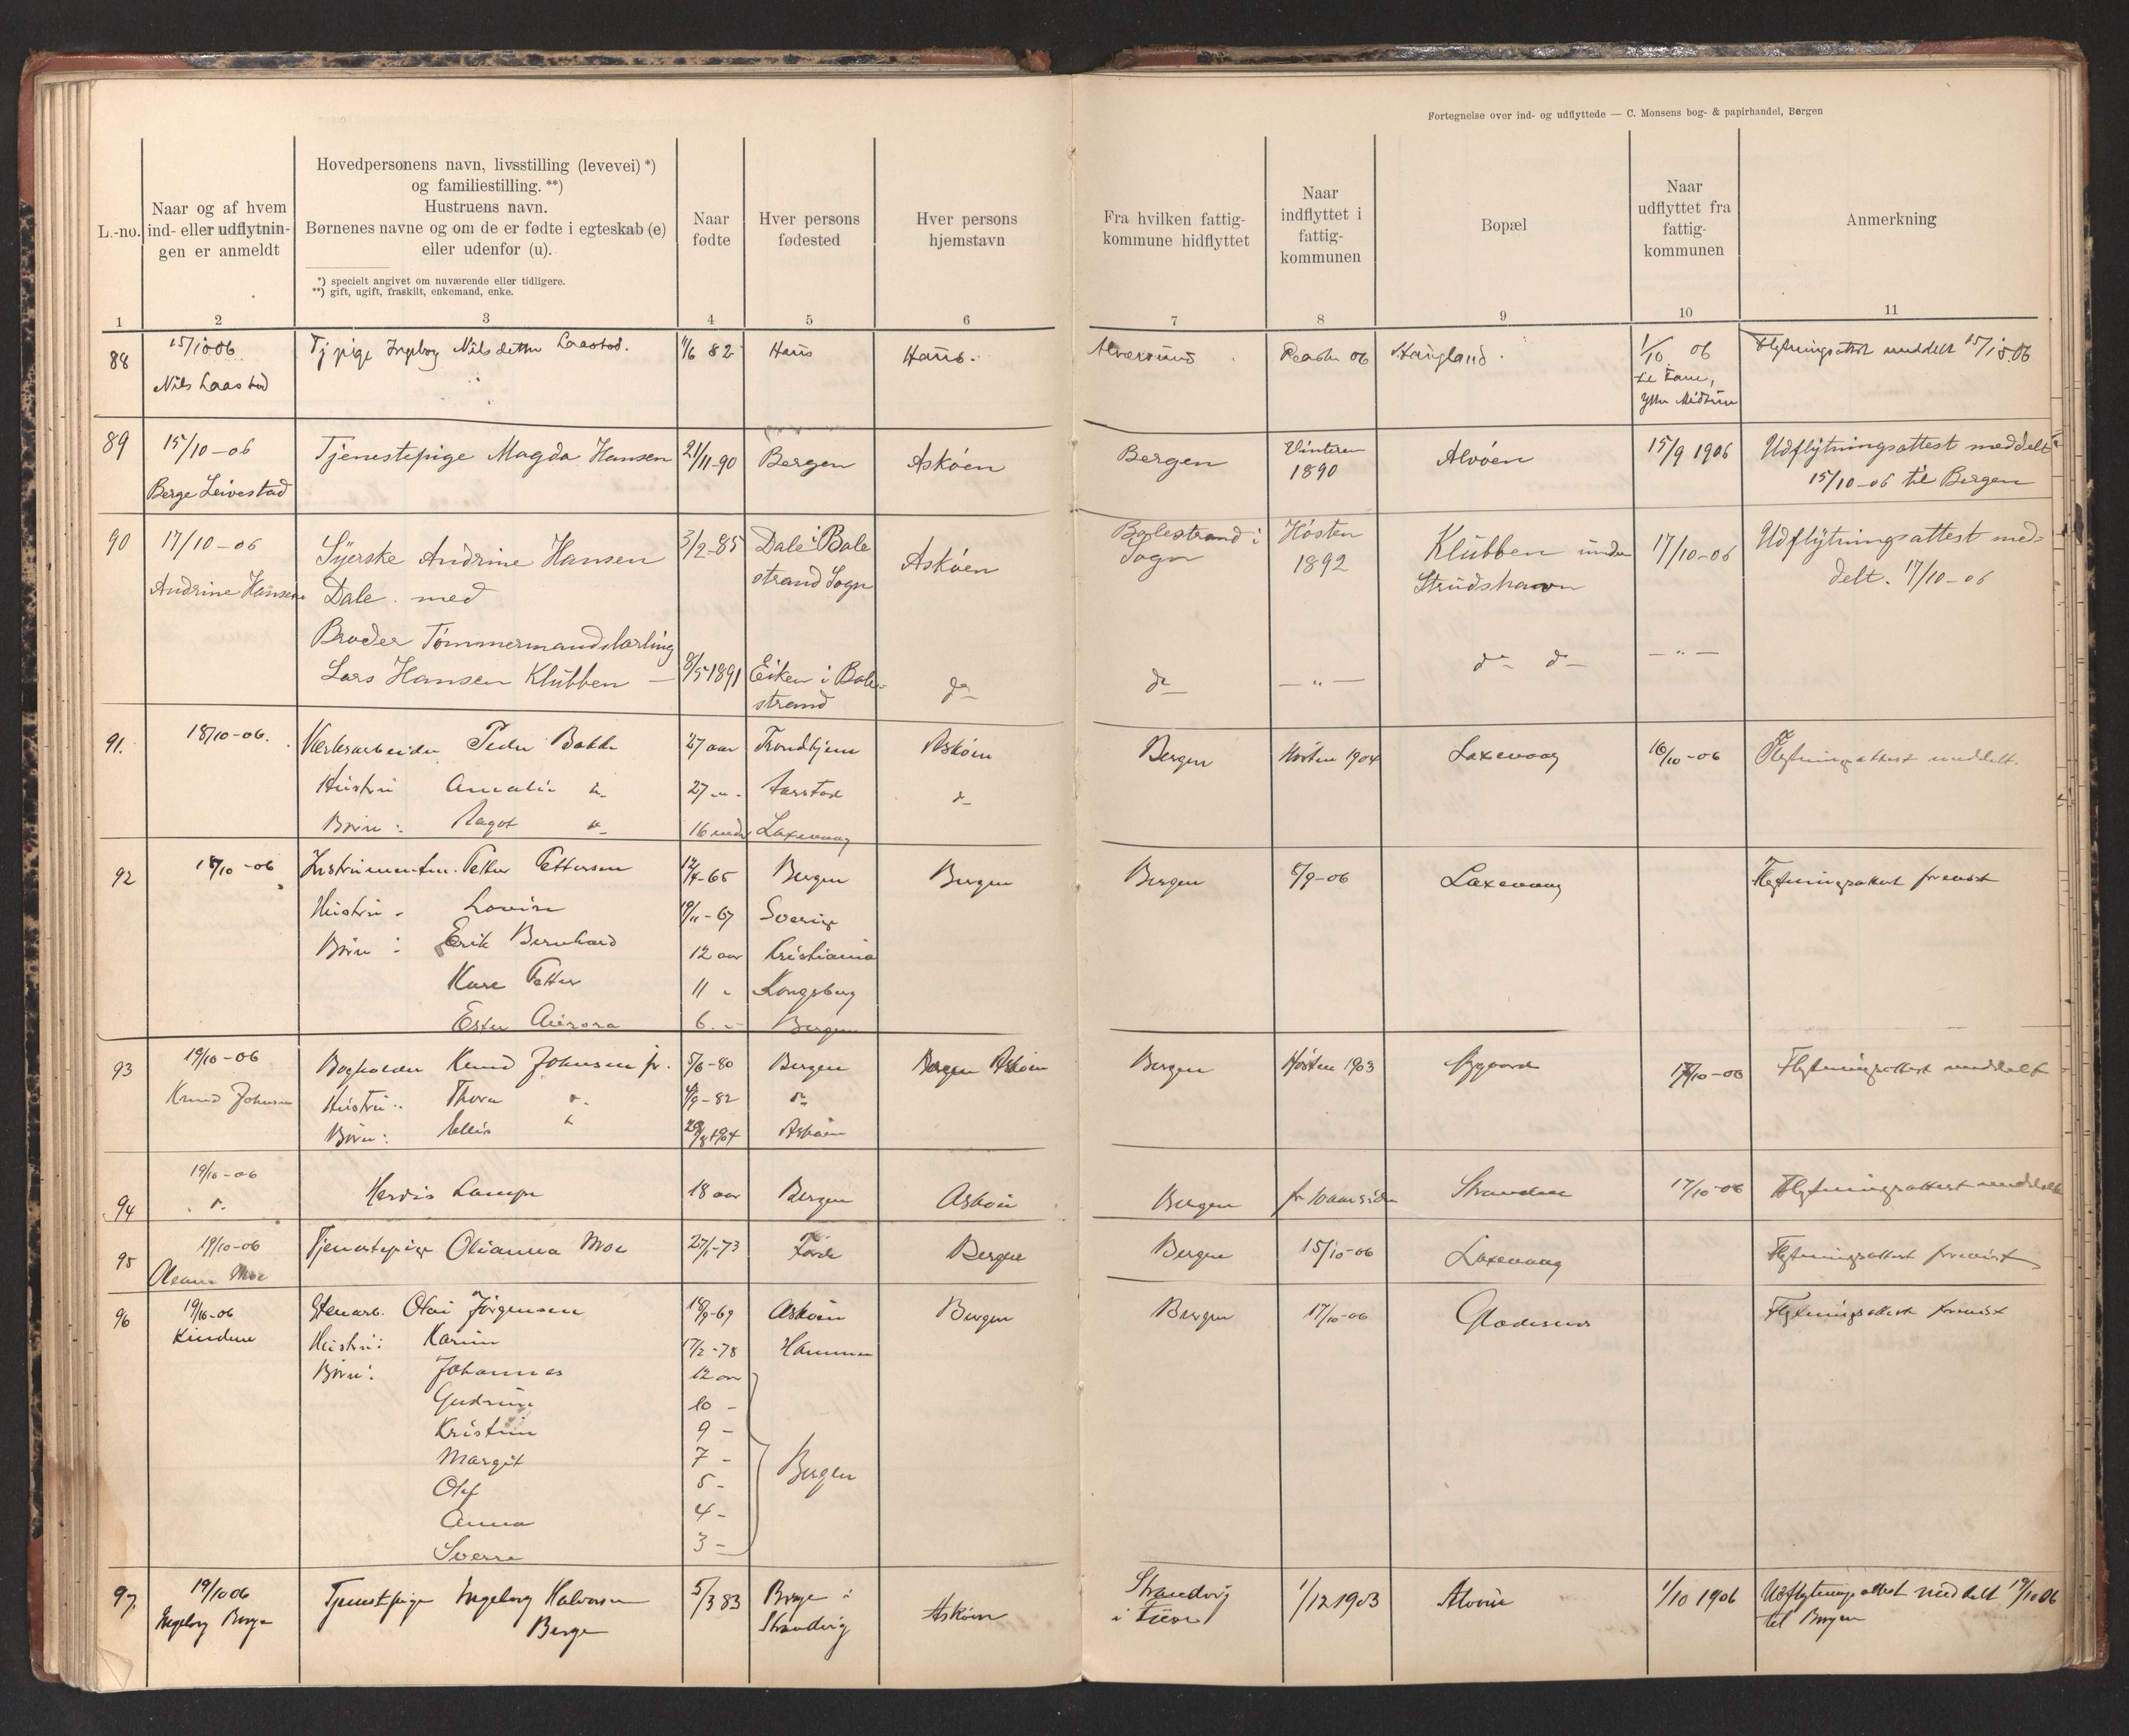 Fortegnelse over ind- og udflyttede — C. Monsens bog- & papirhandel, Bergen
L.-no.
Naar og af hvem
ind- eller udflytnin-
gen er anmeldt
Hovedpersonens navn, livsstilling (levevei) *)
og familiestilling. **)
Hustruens navn.
Børnenes navne og om de er fødte i egteskab (e)
eller udenfor (u).
*) specielt angivet om nuværende eller tidligere.
**) gift, ugift, fraskilt, enkemand, enke.
Naar
fødte
Hver persons
fødested
Hver persons
hjemstavn
Fra hvilken fattig-
kommune hidflyttet
Naar
indflyttet i
fattig-
kommunen
Bopæl
Naar
udflyttet fra
fattig-
kommunen
Anmerkning
1 2 3 4 5 6 7 8 9 10 11
88 15/10 06 Tj pige Ingeborg Nilsdatter Laastad. 1/6 82 Haus Haus. Alversund 06 Haugland. 1/10 06 meddelt 15/10.06
Nils Laastad
til Fane,
89 15/10-06 Tjenestepige Magda Hansen 21/11-90 Bergen Askøen Bergen Vinteren 1890 Alvøen 15/9 1906 Udflytningsattest meddelt
Berge Leivestad 15/10-06 til Bergen
90 17/10-06 Syerske Andrine Hansen 3/2-85 Dale i Bale Askøen Balestrand i Høsten Klubben under 17/10-06 Udflytningsattest med-
Andrine Hansen Dale med strand Sogn Sogn 1892 Strudshavn delt. 17/10-06
Broder Tømmermandslærling
Lars Hansen Klubben — 8/5 1891 Eiken i Bale- do do — " — do do — " —
strand
91. 18/10-06. Verksarbeider Peder Bakke 27 aar Trondhjem Askøen Bergen Høsten 1904 Laxevaag 16/10-06 Flytningsattest meddelt.
Hustru Amalie " 27 " - Aarstad do
Børn: Aagot " 16 mdr Laxevaag
92 18/10-06 Petter Pettersen 12/4-65 Bergen Bergen Bergen 8/9-06 Laxevaag Flytningsattest forevist
Hustru - Lovise 19/11-67 Sverige
Børn: Erik Bernhard 12 aar Kristiania
Kare Petter 11 - Kongsberg
Ester Aurora 6 - Bergen
93 19/10-06 Bogholder Knud Johnsen jr. 5/6-80 Bergen Askøen Bergen Høsten 1903 Nygaard 17/10-06 Flytningsattest meddelt
Knud Johnsen Hustru: Thora " 4/9-82 do
Børn: " Askøen
94 19/10-06 Herdis Lampe 18 aar Bergen Askøen Bergen for 10 aar siden Stranden 17/10-06 Flytningsattest meddelt
95 19/10-06 Tjenestepige Olianna Moe 27/1-73 Førde Bergen Bergen 15/10-06 Laxevaag Flytningsattest forevist
Moe
96 19/10-06 Stenarb. Olai Jørgensen 18/9-69 Askøen Bergen Bergen 17/10-06 Flytningsattest forevist
Hustru: Karen 17/2-78 Hammer
Børn: Johannes 12 aar
Gudrun 10 -
Kristine 9 -
Margit 7 - Bergen
Olaf 5 -
Anna 4 -
Sverre 3 -
97. 19/10 06 Tjenestepige Ingeborg Halvorsen 5/3 83 Berge i Askøen Strandvig 1/12 1903 Alvøen 1/10 1906 Udflytningsattest meddelt 19/10 06
Ingeborg Berge Berge Strandvig i Fuse til Bergen